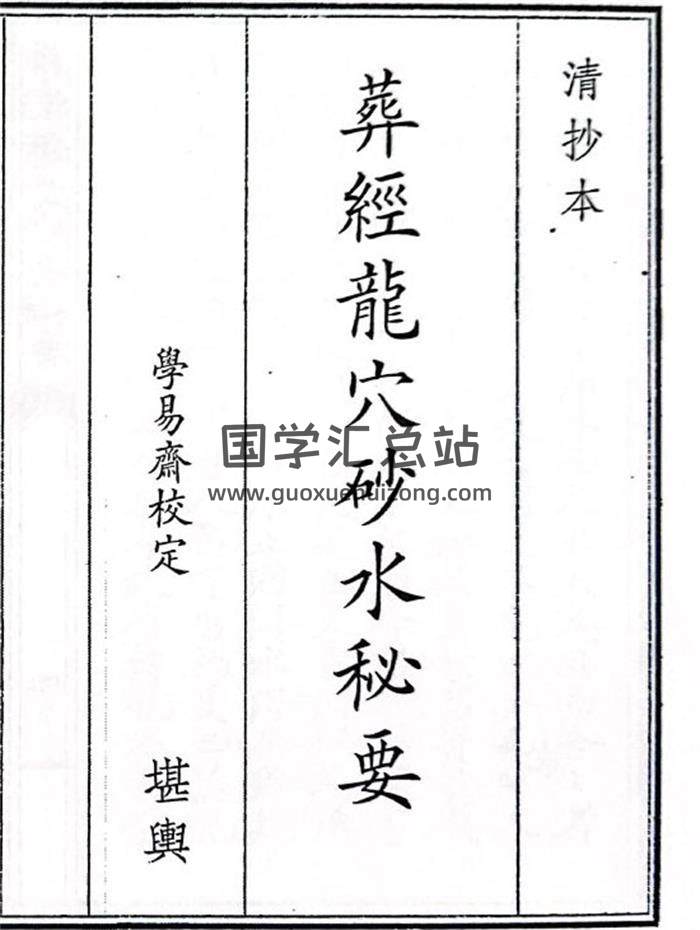 清抄本
葬經龍穴砂水秘要
學易齋校定
堪輿
国学汇总站
www.guoxuehuizong.com